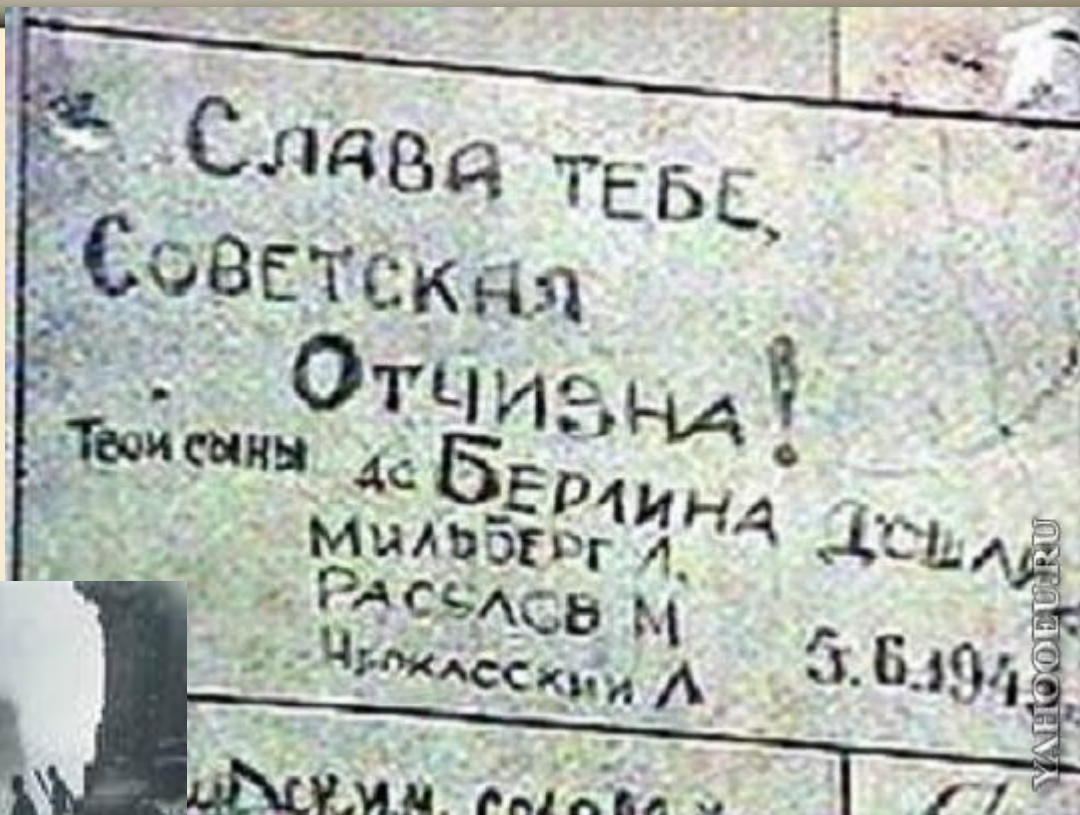 Слава тебе,
Советская
Отчизна!
Твои сыны до Берлина дошли
Мильберг Л.
Расулов М
Черкасский Л
5.6.194
YAHOOEU.RU